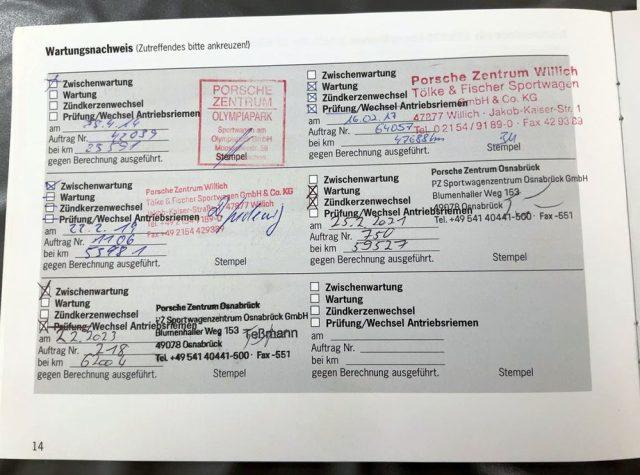 Wartungsnachweis (Zutreffendes bitte ankreuzen!)
Zwischenwartung
Wartung
Zündkerzenwechsel
Prüfung/Wechsel Antriebsriemen
am 4.14
Auftrag Nr. 42039
bei km 23591
gegen Berechnung ausgeführt. Stempel
PORSCHE
ZENTRUM
OLYMPIAPARK
Sportwagen am
Olympiapark GmbH
Zwischenwartung
Wartung
Zündkerzenwechsel
Prüfung/Wechsel Antriebsriemen
am 16.02.17
Auftrag Nr. 64057
bei km 47688km
gegen Berechnung ausgeführt. Stempel
Porsche Zentrum Willich
Tölke & Fischer Sportwagen
GmbH & Co. KG
47877 Willich - Jakob-Kaiser-Str. 1
Tel. 0 21 54 / 91 89-0 · Fax 42 93 89
Zwischenwartung
Wartung
Zündkerzenwechsel
Prüfung/Wechsel Antriebsriemen
am 22.2.19
Auftrag Nr. 1106
bei km 55981
gegen Berechnung ausgeführt. Stempel
Porsche Zentrum Willich
Tölke & Fischer Sportwagen GmbH & Co. KG
47877 Willich
Zwischenwartung
Wartung
Zündkerzenwechsel
Prüfung/Wechsel Antriebsriemen
am 25.2.2021
Auftrag Nr. 750
bei km 59527
gegen Berechnung ausgeführt. Stempel
Porsche Zentrum Osnabrück
PZ Sportwagenzentrum Osnabrück GmbH
Blumenhaller Weg 153
49078 Osnabrück
Tel. +49 541 40441-500 · Fax -551
Zwischenwartung
Wartung
Zündkerzenwechsel
Prüfung/Wechsel Antriebsriemen
am 2.2.2023
Auftrag Nr. 218
bei km 62004
gegen Berechnung ausgeführt. Stempel
Porsche Zentrum Osnabrück
PZ Sportwagenzentrum Osnabrück GmbH
Blumenhaller Weg 153
49078 Osnabrück
Tel. +49 541 40441-500 · Fax -551
Teßmann
Zwischenwartung
Wartung
Zündkerzenwechsel
Prüfung/Wechsel Antriebsriemen
am
Auftrag Nr.
bei km
gegen Berechnung ausgeführt. Stempel
14